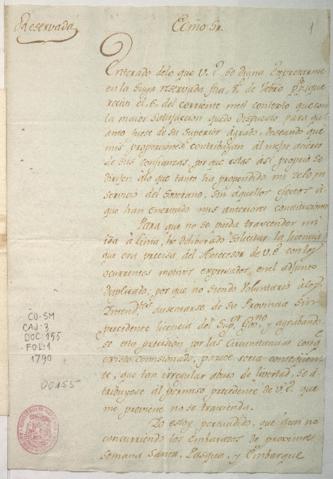 Reservada
Exmo Sor.
1
Enterado de lo que V.E. se digna expresarme
en la suya reservada fha. de Febro pp. que
recivi el 6. del corriente mes contexto que con
la maior satisfaccion quedo despuesto para qu
anto fuese de su Superior agrado, deseando que
mis proporciones contribuyan al mejor acierto
de sus confianzas, por que estas asi propio se
dirijen a lo que tanto ha propendido mi zelo en
servicio del Soverano, sin aquellos efectos a
que han enervado mis anteriores constituciones
Para que no se pueda trascender mi
ida a Lima, he deliverado solicitar la licencia
que era precisa del Antecesor de V.E. con los
ocurrentes motivos expresados, en el adjunto
duplicado, por que no siendo Voluntario a los
Intendtes ausentarse de su Provincia sin
precedente licencia del Supor Govno, y agravando
se esta precision por las Circunstancias con
comisionado, parece seria
que tan irregular abuso de livertad, se a
tribuyese al permiso precedente de V.E. que
me previene no se trascienda.
Yo estoy persuadido, que aun no
concurriendo los Embarazos de proximas
Semana Santa, Pasqua, y Embarque
CO-SM
CAJ: 3
DOC: 155
FOL: 1
1790
D0155